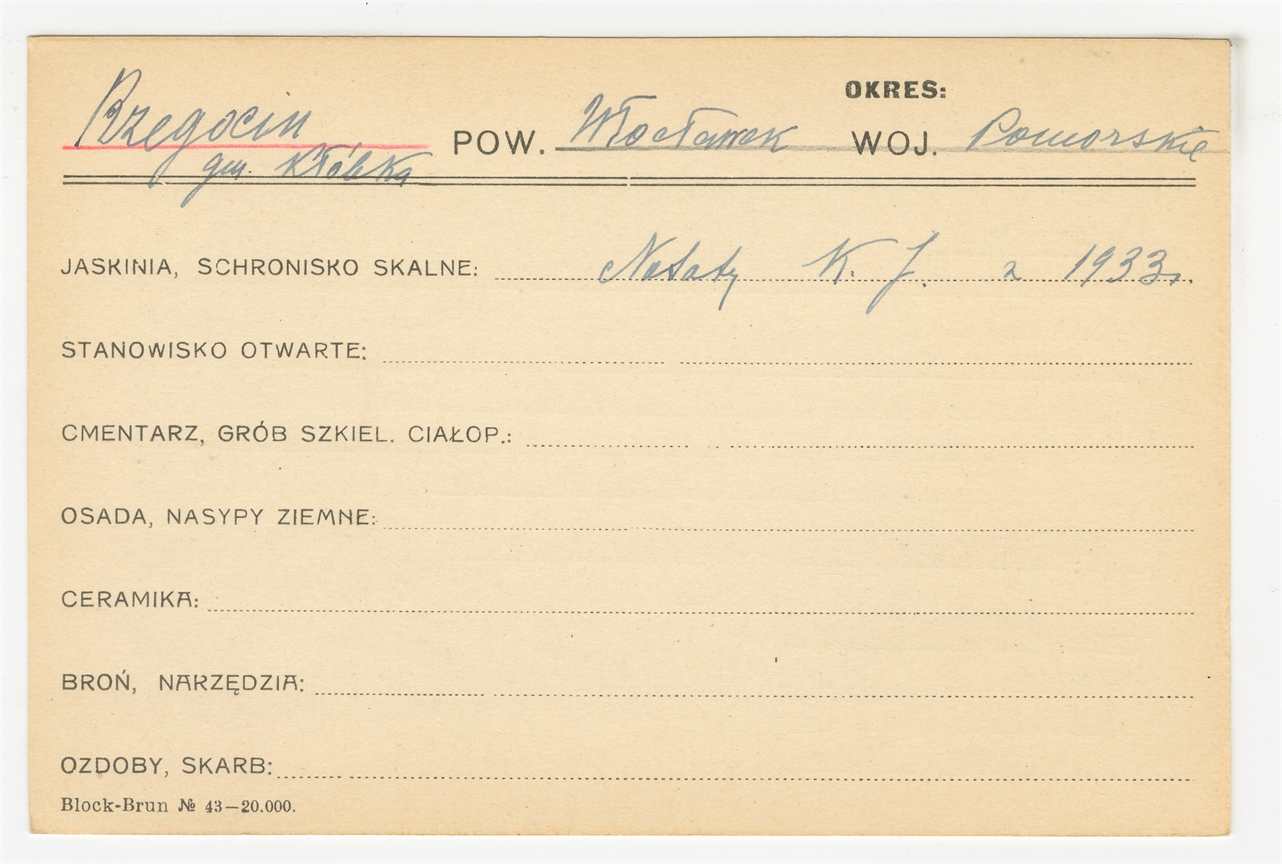 OKRES:
Rzegocin POW. Włocławek WOJ. Pomorskie
gm. Kłóbka
JASKINIA, SCHRONISKO SKALNE: Notaty K. J. z 1933r.
STANOWISKO OTWARTE:
CMENTARZ, GRÓB SZKIEL. CIAŁOP.:
OSADA, NASYPY ZIEMNE:
CERAMIKA:
BROŃ, NARZĘDZIA:
OZDOBY, SKARB:
Block-Brun № 43—20.000.